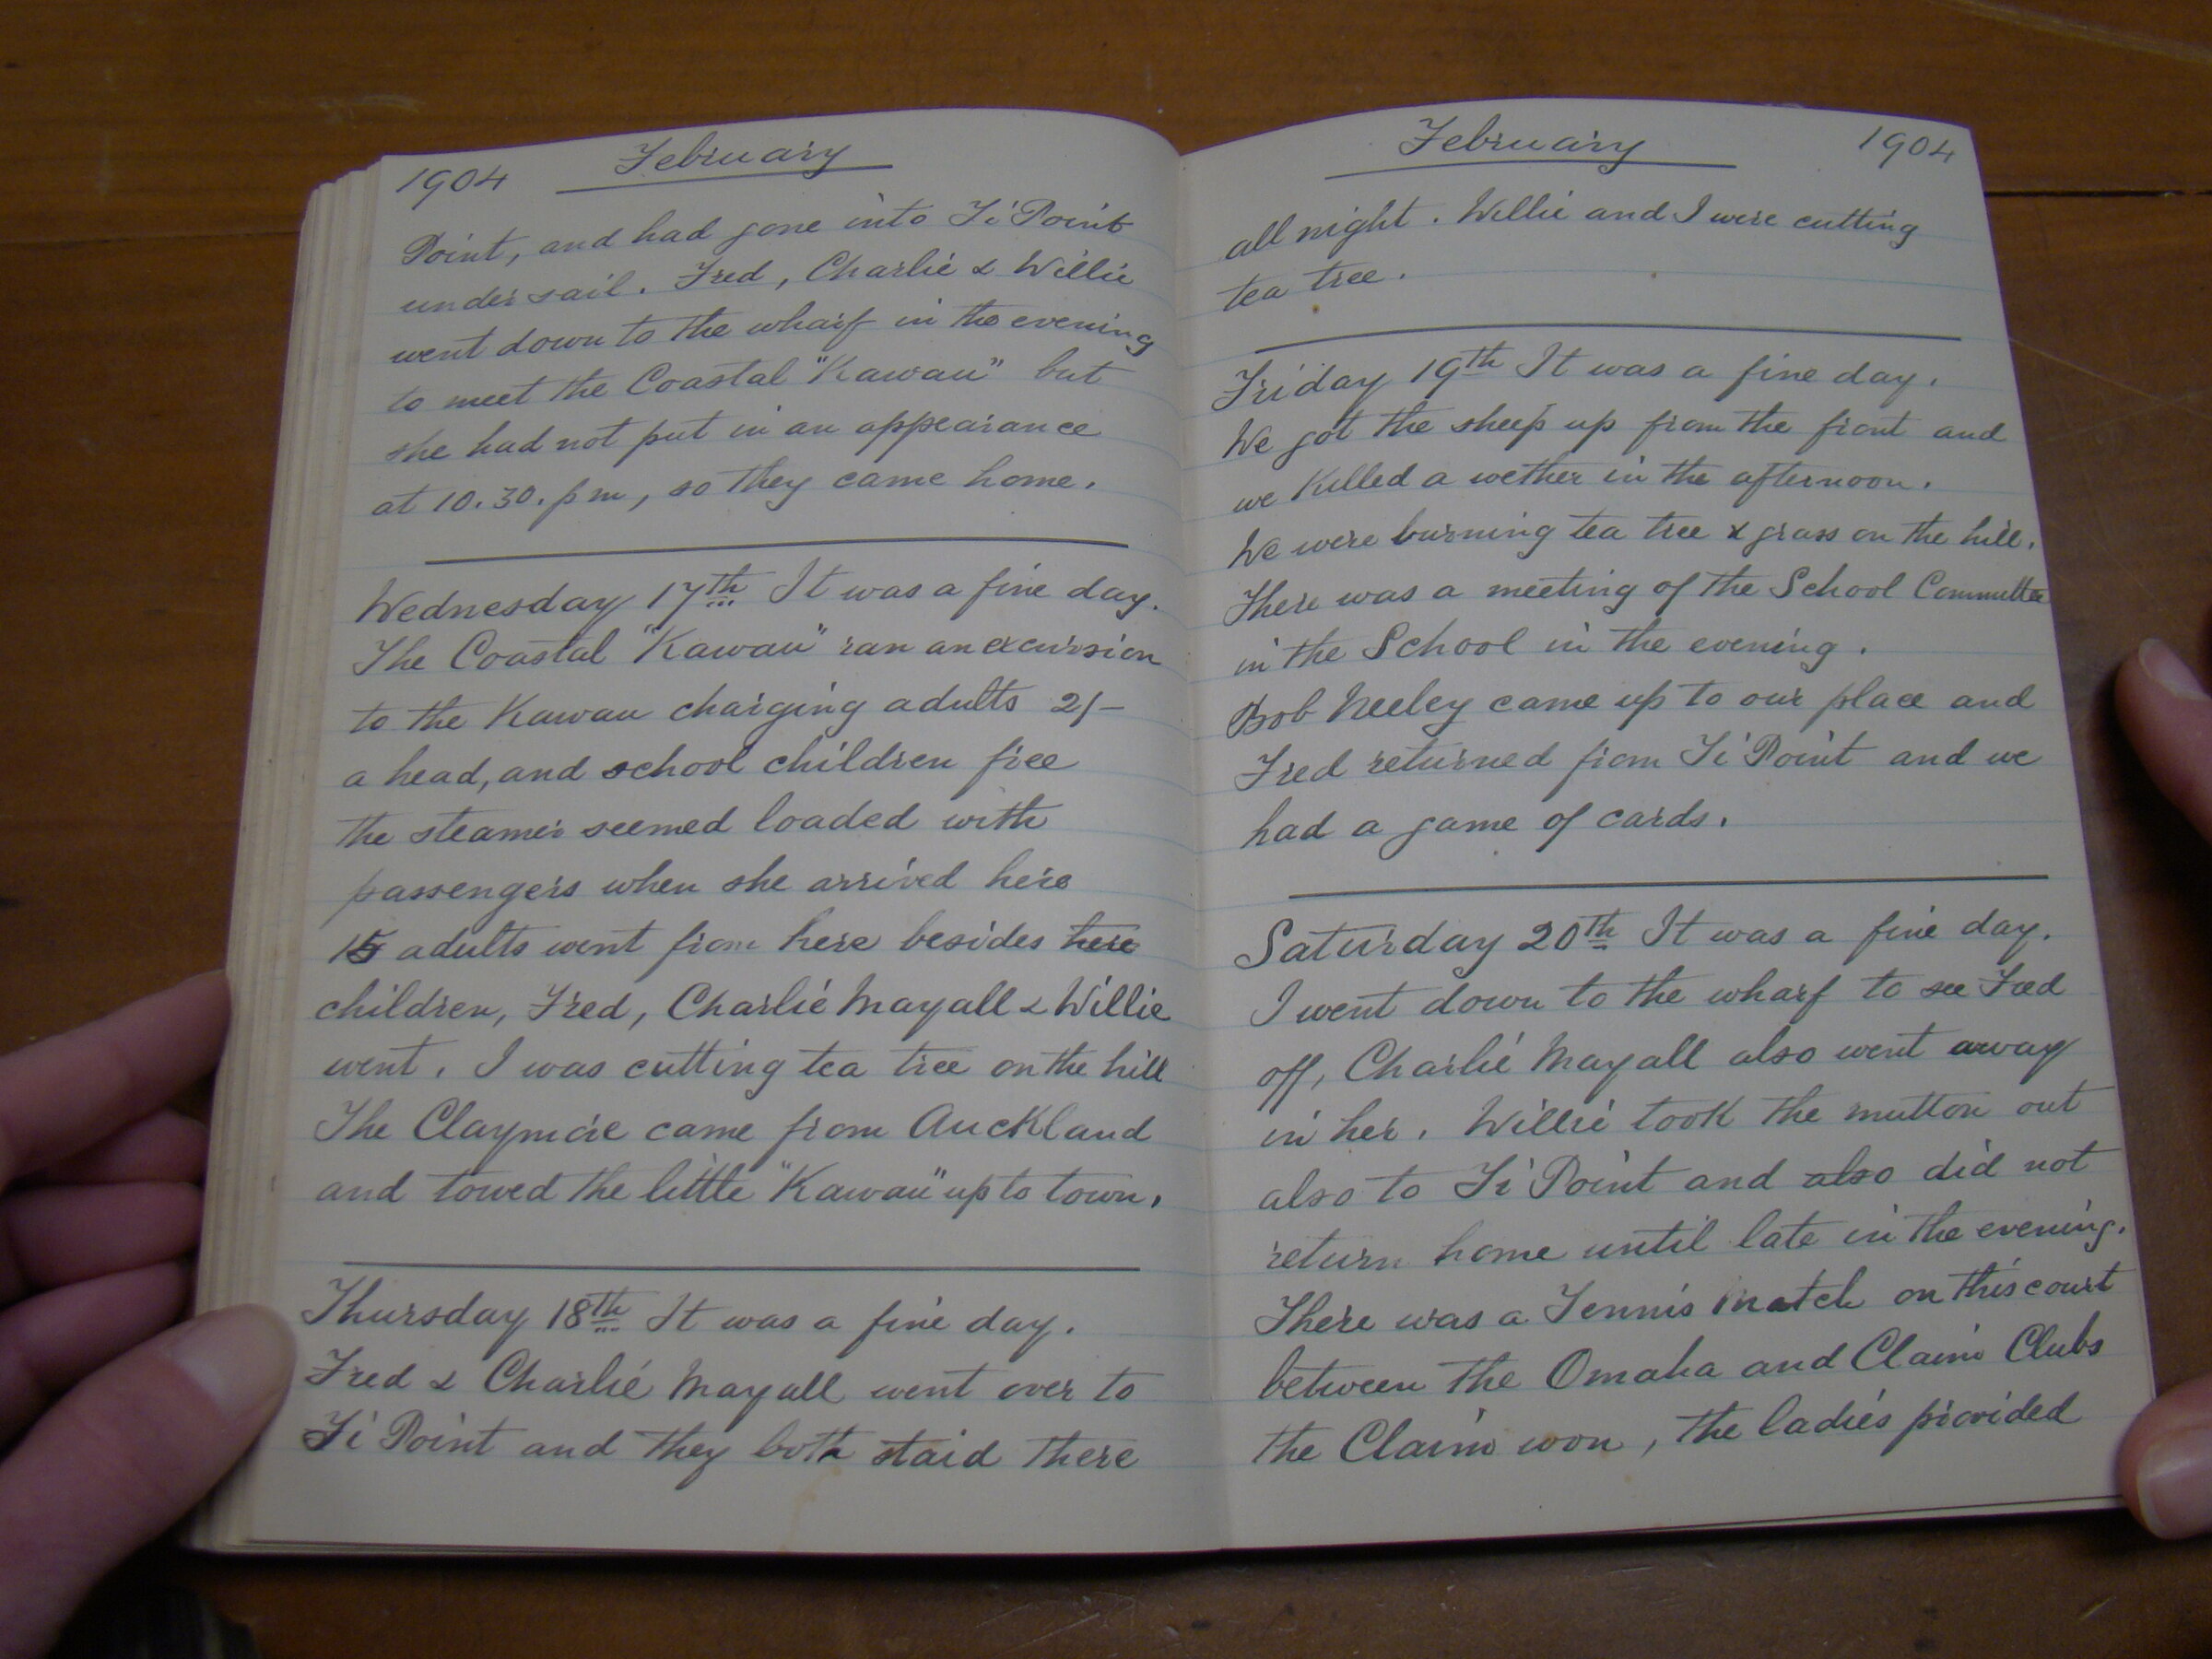 1904 February
Point, and had gone into Ti Point
under sail. Fred, Charlie & Willie
went down to the wharf in the evening
to meet the Coastal "Kawau" but
she had not put in an appearance
at 10.30. pm, so they came home.
Wednesday 17th It was a fine day.
The Coastal "Kawau" ran an excursion
to the Kawau charging adults 2/-
a head, and school children free
the steamer seemed loaded with
passengers when she arrived here
15 adults went from here besides here
children, Fred, Charlie Mayall & Willie
went. I was cutting tea tree on the hill
The Claymore came from Auckland
and towed the little "Kawau" up to town.
Thursday 18th It was a fine day.
Fred & Charlie Mayall went over to
Ti Point and they both staid there
February 1904
all night. Willie and I were cutting
tea tree.
Friday 19th It was a fine day.
We got the sheep up from the front and
we Killed a wether in the afternoon.
We were burning tea tree & grass on the hill.
There was a meeting of the School Committee
in the School in the evening.
Bob Neeley came up to our place and
Fred returned from Ti Point and we
had a game of cards.
Saturday 20th It was a fine day.
I went down to the wharf to see Fred
off, Charlie Mayall also went away
in her. Willie took the mutton out
also to Ti Point and also did not
return home until late in the evening.
There was a Tennis Match on this court
between the Omaha and Claim Clubs
the Claim won, the ladies provided